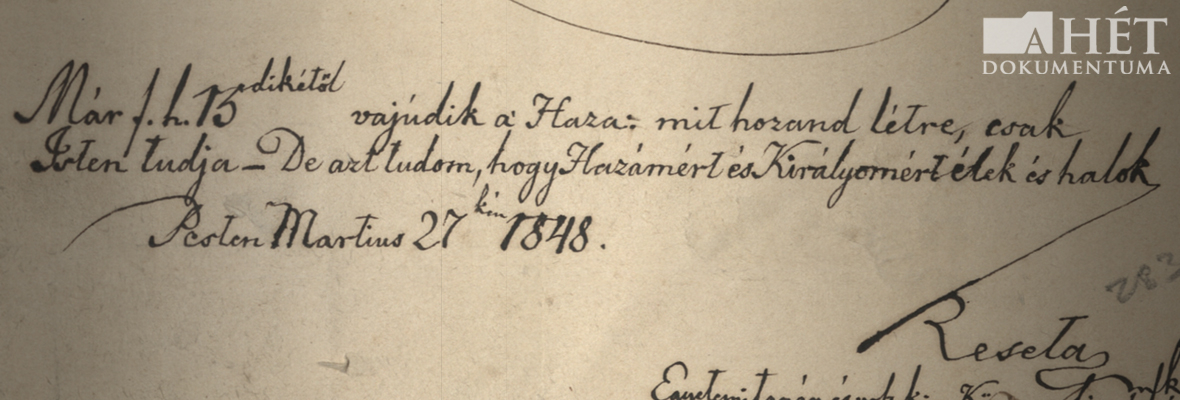 A HÉT
DOKUMENTUMA
Már f. h. 15dikétől vajúdik a' Haza: mit hozand létre, csak
Isten tudja – De azt tudom, hogy Hazámért és Királyomért élek és halok
Pesten Martius 27kin 1848.
Reseta